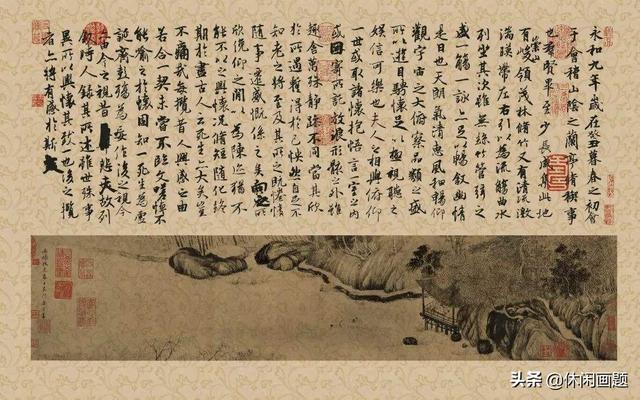 永和九年歲在癸丑暮春之初會
于會稽山陰之蘭亭脩稧事
也群賢畢至少長咸集此地
有崇山峻領茂林脩竹又有清流激
湍暎帶左右引以為流觴曲水
列坐其次雖無絲竹管弦之
盛一觴一詠亦足以暢敘幽情
是日也天朗氣清惠風和暢仰
觀宇宙之大俯察品類之盛
所以遊目騁懷足以極視聽之
娛信可樂也夫人之相與俯仰
一世或取諸懷抱悟言一室之內
或因寄所託放浪形骸之外雖
趣舍萬殊靜躁不同當其欣
於所遇蹔得於己怏然自足不
知老之將至及其所之既惓情
隨事遷感慨係之矣向之所
欣俛仰之閒以為陳跡猶不
能不以之興懷況脩短隨化終
期於盡古人云死生亦大矣豈
不痛哉每攬昔人興感之由
若合一契未嘗不臨文嗟悼不
能喻之於懷固知一死生為虛
誕齊彭殤為妄作後之視今
亦由今之視昔悲夫故列
敘時人錄其所述雖世殊事
異所以興懷其致一也後之攬
者亦將有感於斯
头条 @休闲画题